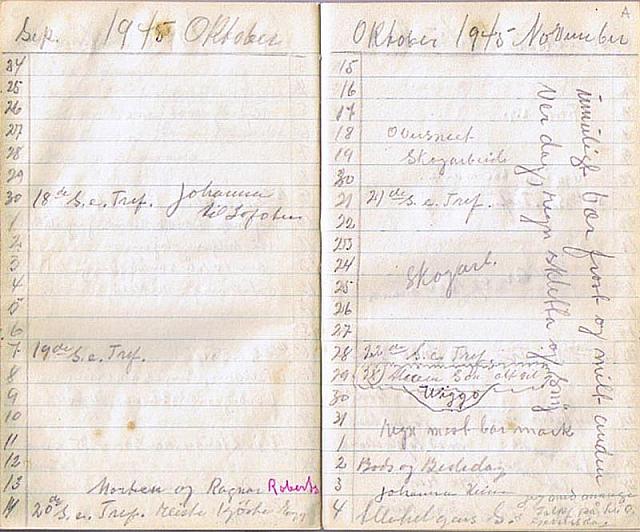 Sep. 1945 Oktober
24
25
26
27
28
29
30 18de S.e. Tref. Johanna
til Lofoten
1
2
3
4
5
6
7 19de S.e. Tref.
8
9
10
11
12
13 Morten og Ragnar Roberts
14 20de S.e. Tref.
A
Oktober 1945 November
15
16
17
18 Overskeet
19 Skogarbeid
20
21 21de S.e. Tref.
22
23
24 Skogarb.
25
26
27
28 22de S.e. Tref.
29
30 Viggo
31 regn mest bar mark
1
2 Bods og Bededag
3 Johanna
4 Allehelgens S.
frost og mildt
Ver dags regn sletta og